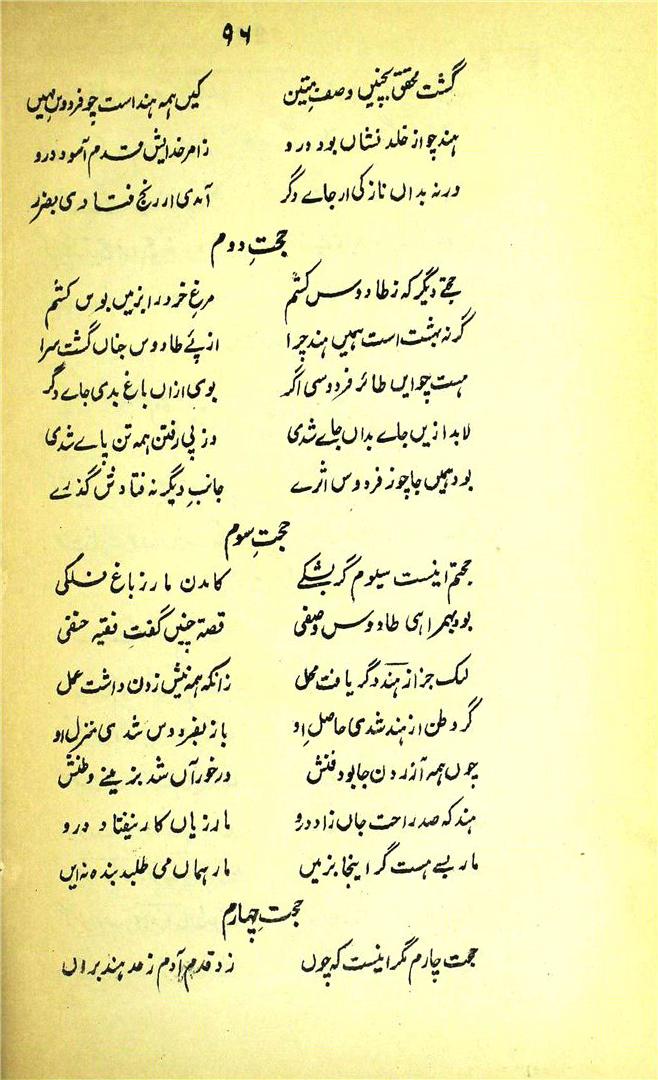 ۹۶
گشت محقق بچنیں وصفِ متین کیں ہمہ ہند است چو فردوس بہیں
ہند چو از خلد نشاں بود درو زامر خدایش قدم آسود درو
ورنہ بداں نازکی ار جاے دگر آمدی از رنج فتادی بضرر
حجتِ دوم
حجتے دیگر کہ ز طاووس کشم مرغِ خرد را بزمیں بوس کشم
گر نہ بہشت است ہمیں ہند چرا از پئے طاووس جناں گشت سرا
ہست چو ایں طائر فردوسی اگر بوی ازاں باغ بدی جاے دگر
لابد ازیں جاے بداں جاے شدی وز پی رفتن ہمہ تن پاے شدی
بود ہمیں جا چو ز فردوس اثرے جانبِ دیگر نہ فتادش گذرے
حجتِ سوم
حجتم اینست سیوم گر بشکے کامدن مار ز باغ فلکی
بود بہمراہی طاووس وصفی قصہ چنیں گفت فقیہ حنفی
لیک جز از ہند دگر یافت محل زانکہ ہمہ نیش زدن داشت عمل
گر وطن از ہند شدی حاصلِ او باز بفردوس شدی منزل او
چوں ہمہ آزردن جا بود فنش درخور آں شد بزمینے وطنش
ہند کہ صد راحت جاں زاد درو مار زیاں کار نیفتاد درو
مار بسے ہست گر اینجا بزمیں مار ہماں می طلبد بندہ نہ ایں
حجتِ چہارم
حجت چارم مگر اینست کہ چوں زد قدم آدم ز مد ہند براں